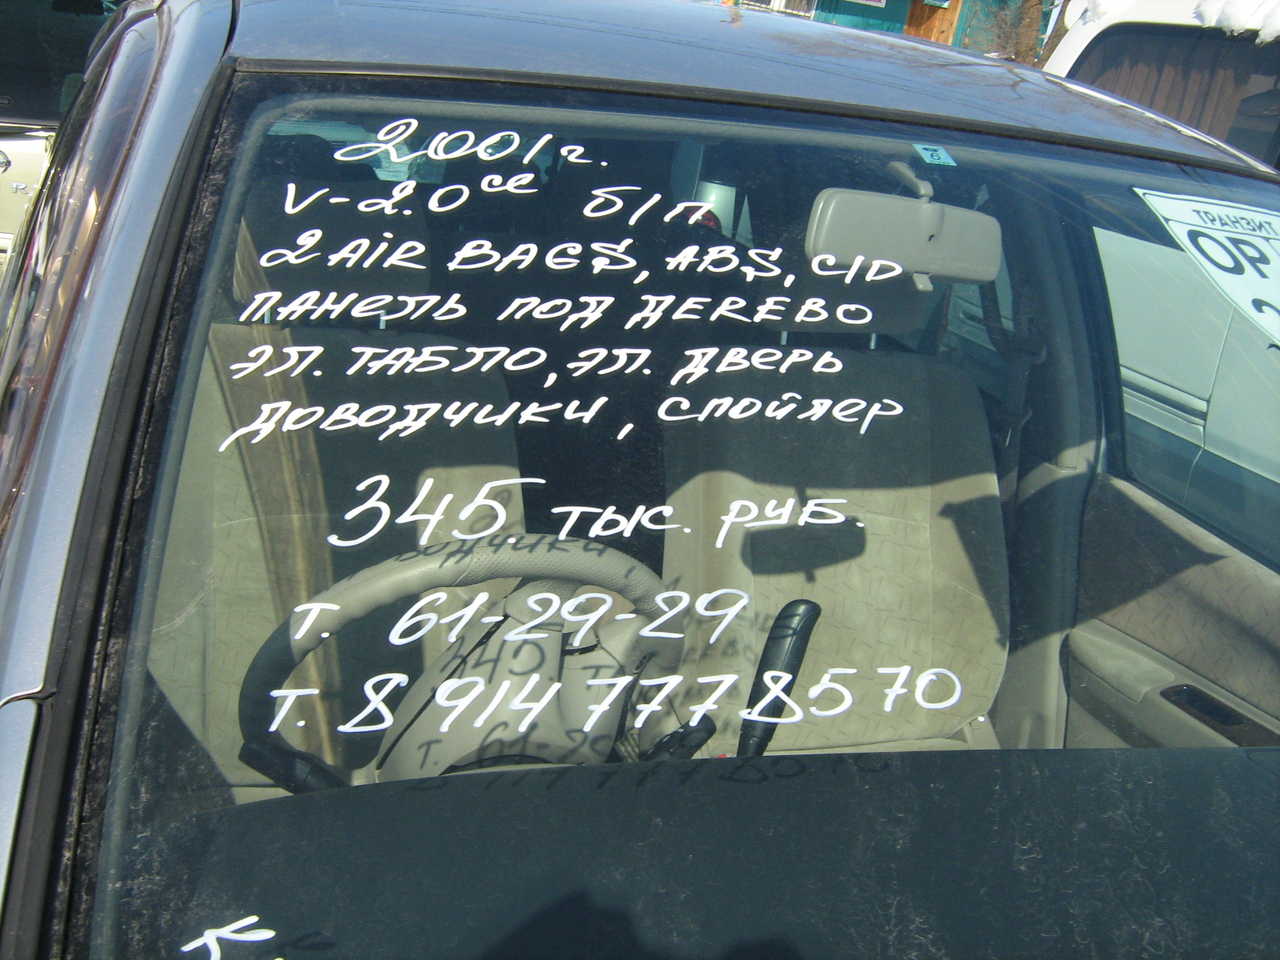 2001г.
V-2.0cc б/п
2 AiR BAGS, ABS, C/D
ПАНЕЛЬ ПОД ДЕRЕВО
ЭЛ. ТАБЛО, ЭЛ. ДВЕРЬ
ДОВОДЧИКИ, СПОЙЛЕР
345. ТЫС. РУБ.
Т. 61-29-29
Т. 8 914 777 8570.
6
ТРАНЗИТ
ОР